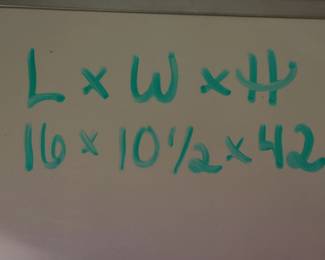 L x W x H
16 x 10 1/2 x 42